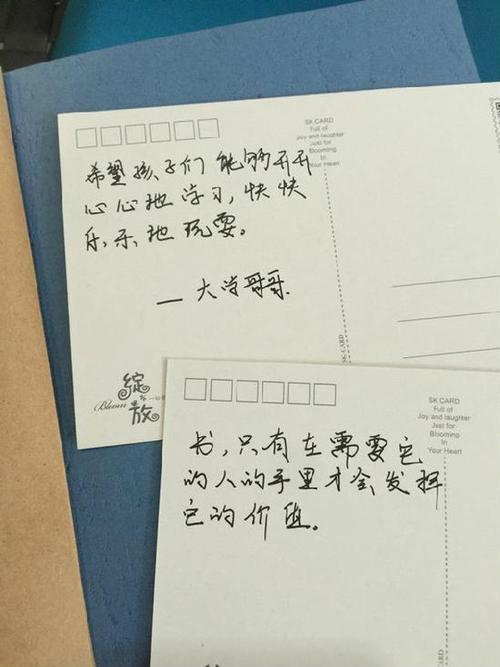 SK CARD
Full of
Joy and laughter
Just for
Blooming
In
Your Heart
希望孩子们能够开开
心心地学习,快快
乐乐地玩耍。
— 大学哥哥
SK CARD
绽放
Bloom
SK CARD
Full of
Joy and laughter
Just for
Blooming
In
Your Heart
书,只有在需要它
的人的手里才会发挥
它的价值。
SK CARD
绽